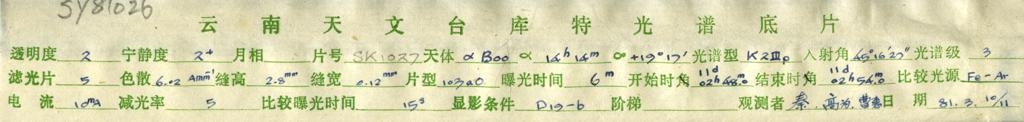 SY81026
云南天文台库特光谱底片
透明度 2 宁静度 2+ 月相 片号 SK1027 天体 α Boo α 14h 14m δ +19°17' 光谱型 K2IIIp 入射角 45°16'27" 光谱级 3
滤光片 5 色散 6.02 Åmm-1 缝高 2.8mm 缝宽 0.12mm 片型 103aO 曝光时间 6m 开始时角 11d 02h48m.0 结束时角 11d 02h54m.0 比较光源 Fe-Ar
电流 10mA 减光率 5 比较曝光时间 15s 显影条件 D19-6 阶梯 观测者 秦. 高为. 曹惠 日期 81. 3. 10/11